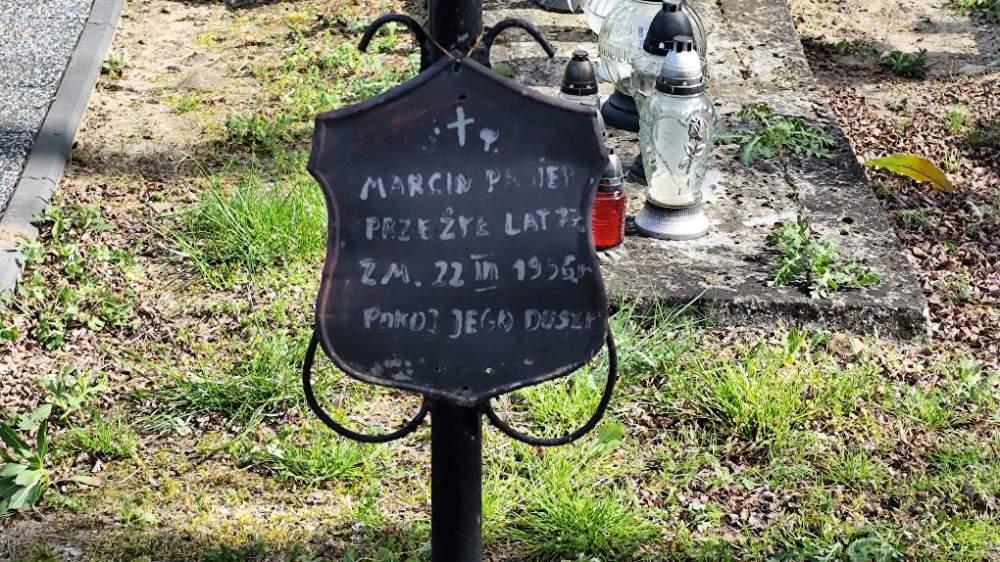 Ś † P.
MARCIN
PRZEŻYŁ LAT 77
ZM. 22 III 1956 r
POKÓJ JEGO DUSZY